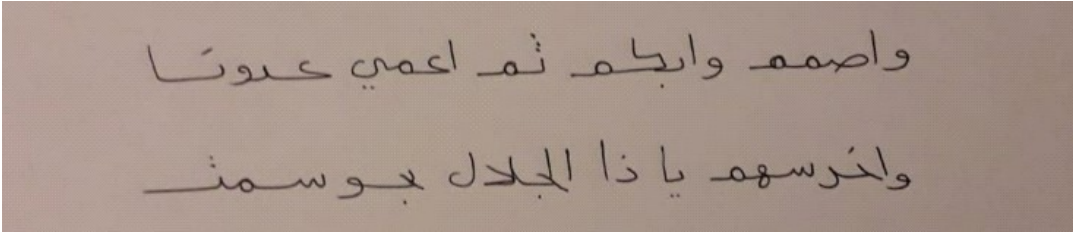 واصمم وابكم ثم اعمي عدونا
واخرسهم يا ذا الجلال بحوسمت